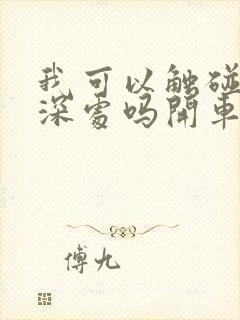 我可以触碰
深處吗開車
傅九